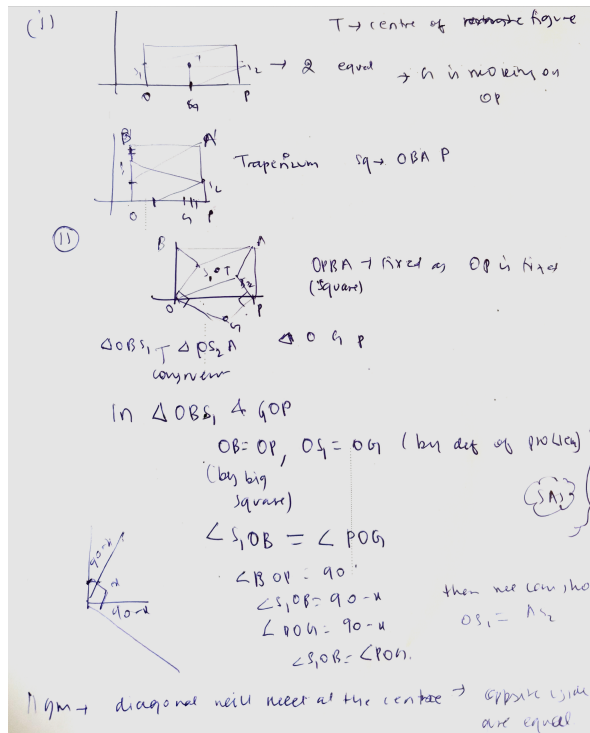 (i)
T → centre of figure
S₁ T S₂ → 2 equal → G is moving on OP
O G P
B A
Trapezium Sq → OBA P
S₁ S₂
O G P
(ii)
B A
S₁ T S₂
O P
G
OPBA → fixed as OP is fixed
(square)
△OBS₁ T △PS₂A △OGP
congruent
In △OBS₁ & GOP
OB = OP, OS₁ = OG (by def of problem)
(by big square)
(SAS)
∠S₁OB = ∠POG
90-x
x
90-x
∠BOP = 90
∠S₁OB = 90-x
∠POG = 90-x
∠S₁OB = ∠POG.
then we can sho
OS₁ = AS₂
||gm → diagonal will meet at the centre → opposite side
are equal